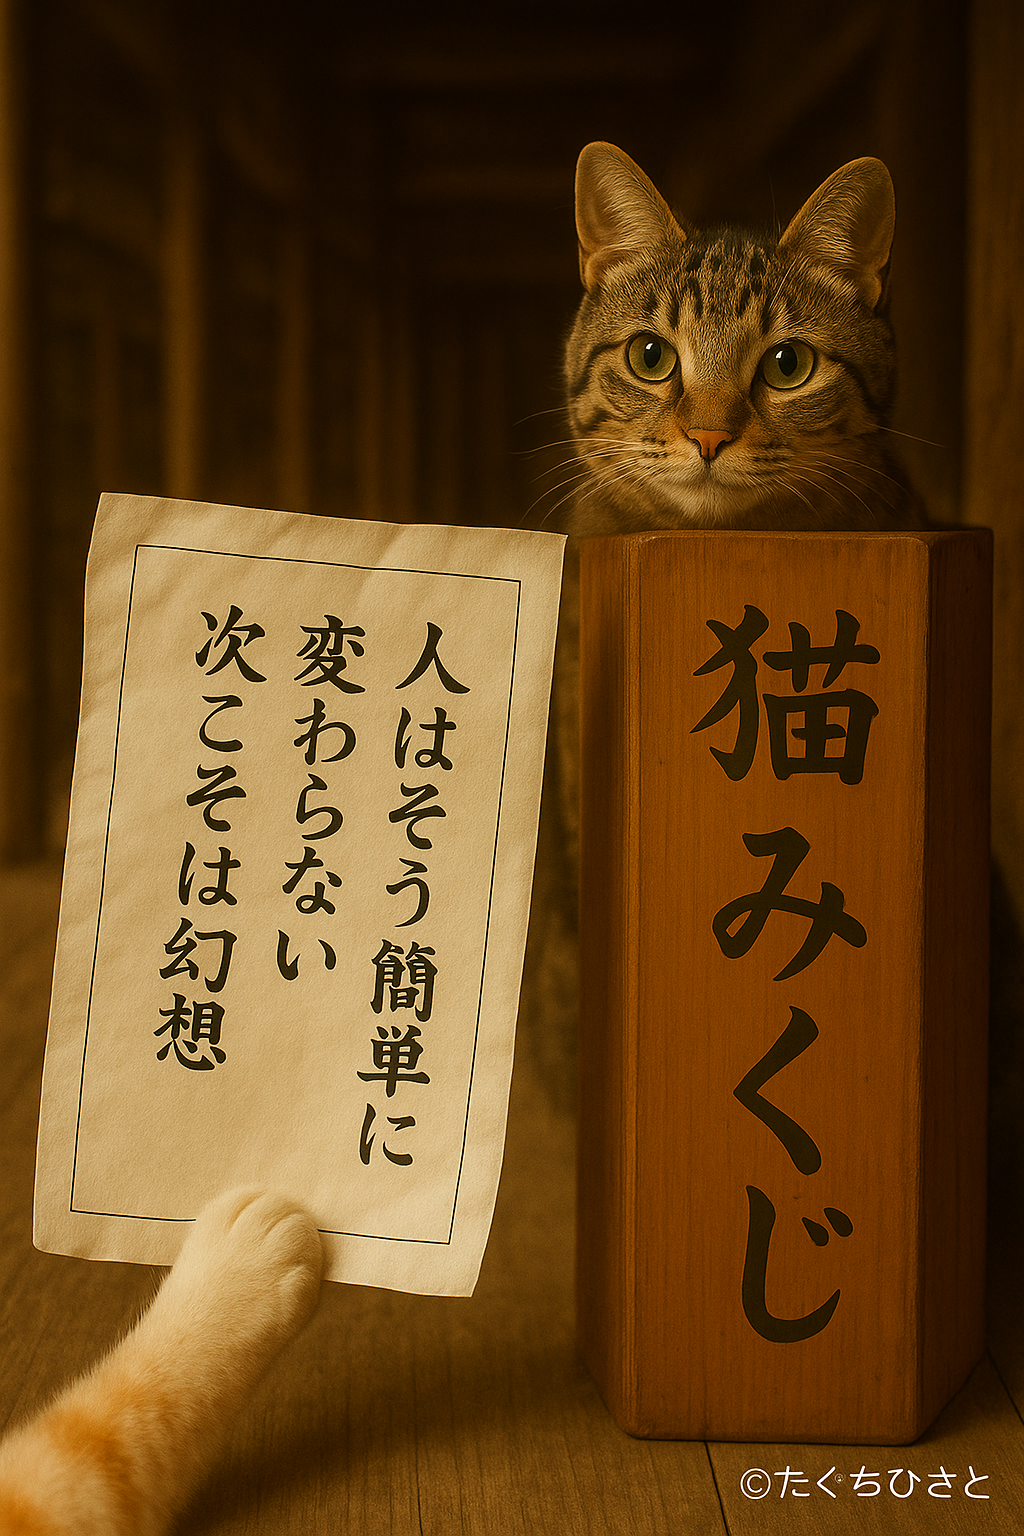 人はそう簡単に
変わらない
次こそは幻想
猫みくじ
©たぐちひさと